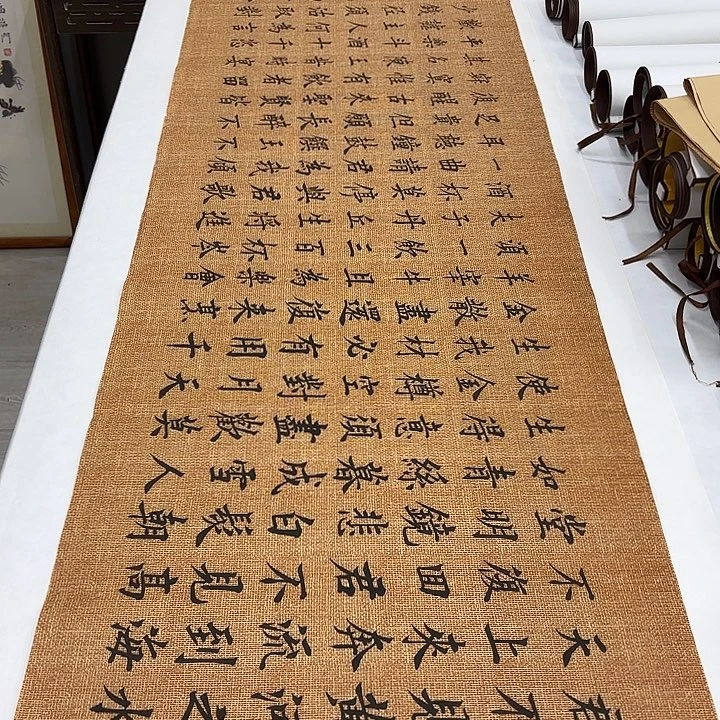 君不見黃河之水
天上來奔流到海
不復回君不見高
堂明鏡悲白髮朝
如青絲暮成雪人
生得意須盡歡莫
使金樽空對月天
生我材必有用千
金散盡還復來烹
羊宰牛且為樂會
須一飲三百杯岑
夫子丹丘生將進
酒杯莫停與君歌
一曲請君為我傾
耳聽鐘鼓饌玉不
足貴但願長醉不
復醒古來聖賢皆
寂寞惟有飲者留
其名陳王昔時宴
平樂斗酒十千恣
歡謔主人何為言
少錢徑須沽取對